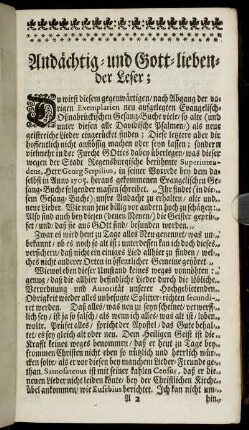 Andächtig- und Gott-lieben-
der Leser;
DU wirst diesem gegenwärtigen/ nach Abgang der vo-
rigen Exemplarien neu aufgelegten Evangelisch-
Oßnabrückischen Gesang-Buche viele/ so alte (und
unter diesen alle Davidische Psalmen/) als neue
geistreiche Lieder eingerückt finden; Diese letztere aber dir
hoffentlich nicht anstößig machen oder seyn lassen; sondern
vielmehr in der Furcht GOttes dabey überlegen/ was dieser
der Stadt Regenspurgische berühmte Superinten-
dens, Herr Georg Serpilius, in seiner Vorrede bey dem da-
selbst in Anno 1705. heraus gekommenen Evangelischen Ge-
sang-Buche folgender massen schreibet. „Ihr findet (in die-
sem Gesang-Buche) unsrer Andacht zu erhalten/ alte und
neue Lieder. Wie nun jene billig vor andern hoch zu schätzen:
Also sind auch bey diesen (denen Neuen) die Geister geprü-
fet/ und/ daß sie aus GOtt sind/ befunden worden.
Zwar es wird heut zu Tage alles Neu genennet/ was un-
bekannt/ ob es noch so alt ist; unterdessen kan ich doch dieses
versichern/ daß nicht ein einziges Lied allhier zu finden/ wel-
ches nicht anderer Orten in öffentlicher Gemeine geöhret
Wiewol eben dieser Umstand keines weges vonnöthen:
genug/ daß die allhier befindliche Lieder durch die löbliche
Verordnung und Autorität unserer Hochgebietenden
Obrigkeit wieder alles unbefugte Splitter-richten secundi-
ret werden. Daß alles/ was neu zu seyn scheinet/ verwerff-
lich sey/ ist ja so falsch/ als wenn ich alles/ was alt ist/ loben
wolte. Prüfet alles/ spricht der Apostel/ das Gute behal-
tet/ es sey gleich alt oder neu. Dem Heiligen Geist ist die
Kraft keines weges benommen/ daß er heut zu Tage bey
frommen Christen nicht eben so nützlich und herrlich wür-
cken solte/ als er vor diesen bey manchem Lieder-Freunde ge-
than. Samosatenus ist mit seiner kahlen Censur, daß er die
neuen Lieder nicht leiden könte/ bey der Christlichen Kirche
übel ankommen/ wie Eusebius berichtet. Ich kan nicht um-
A 2
hin,